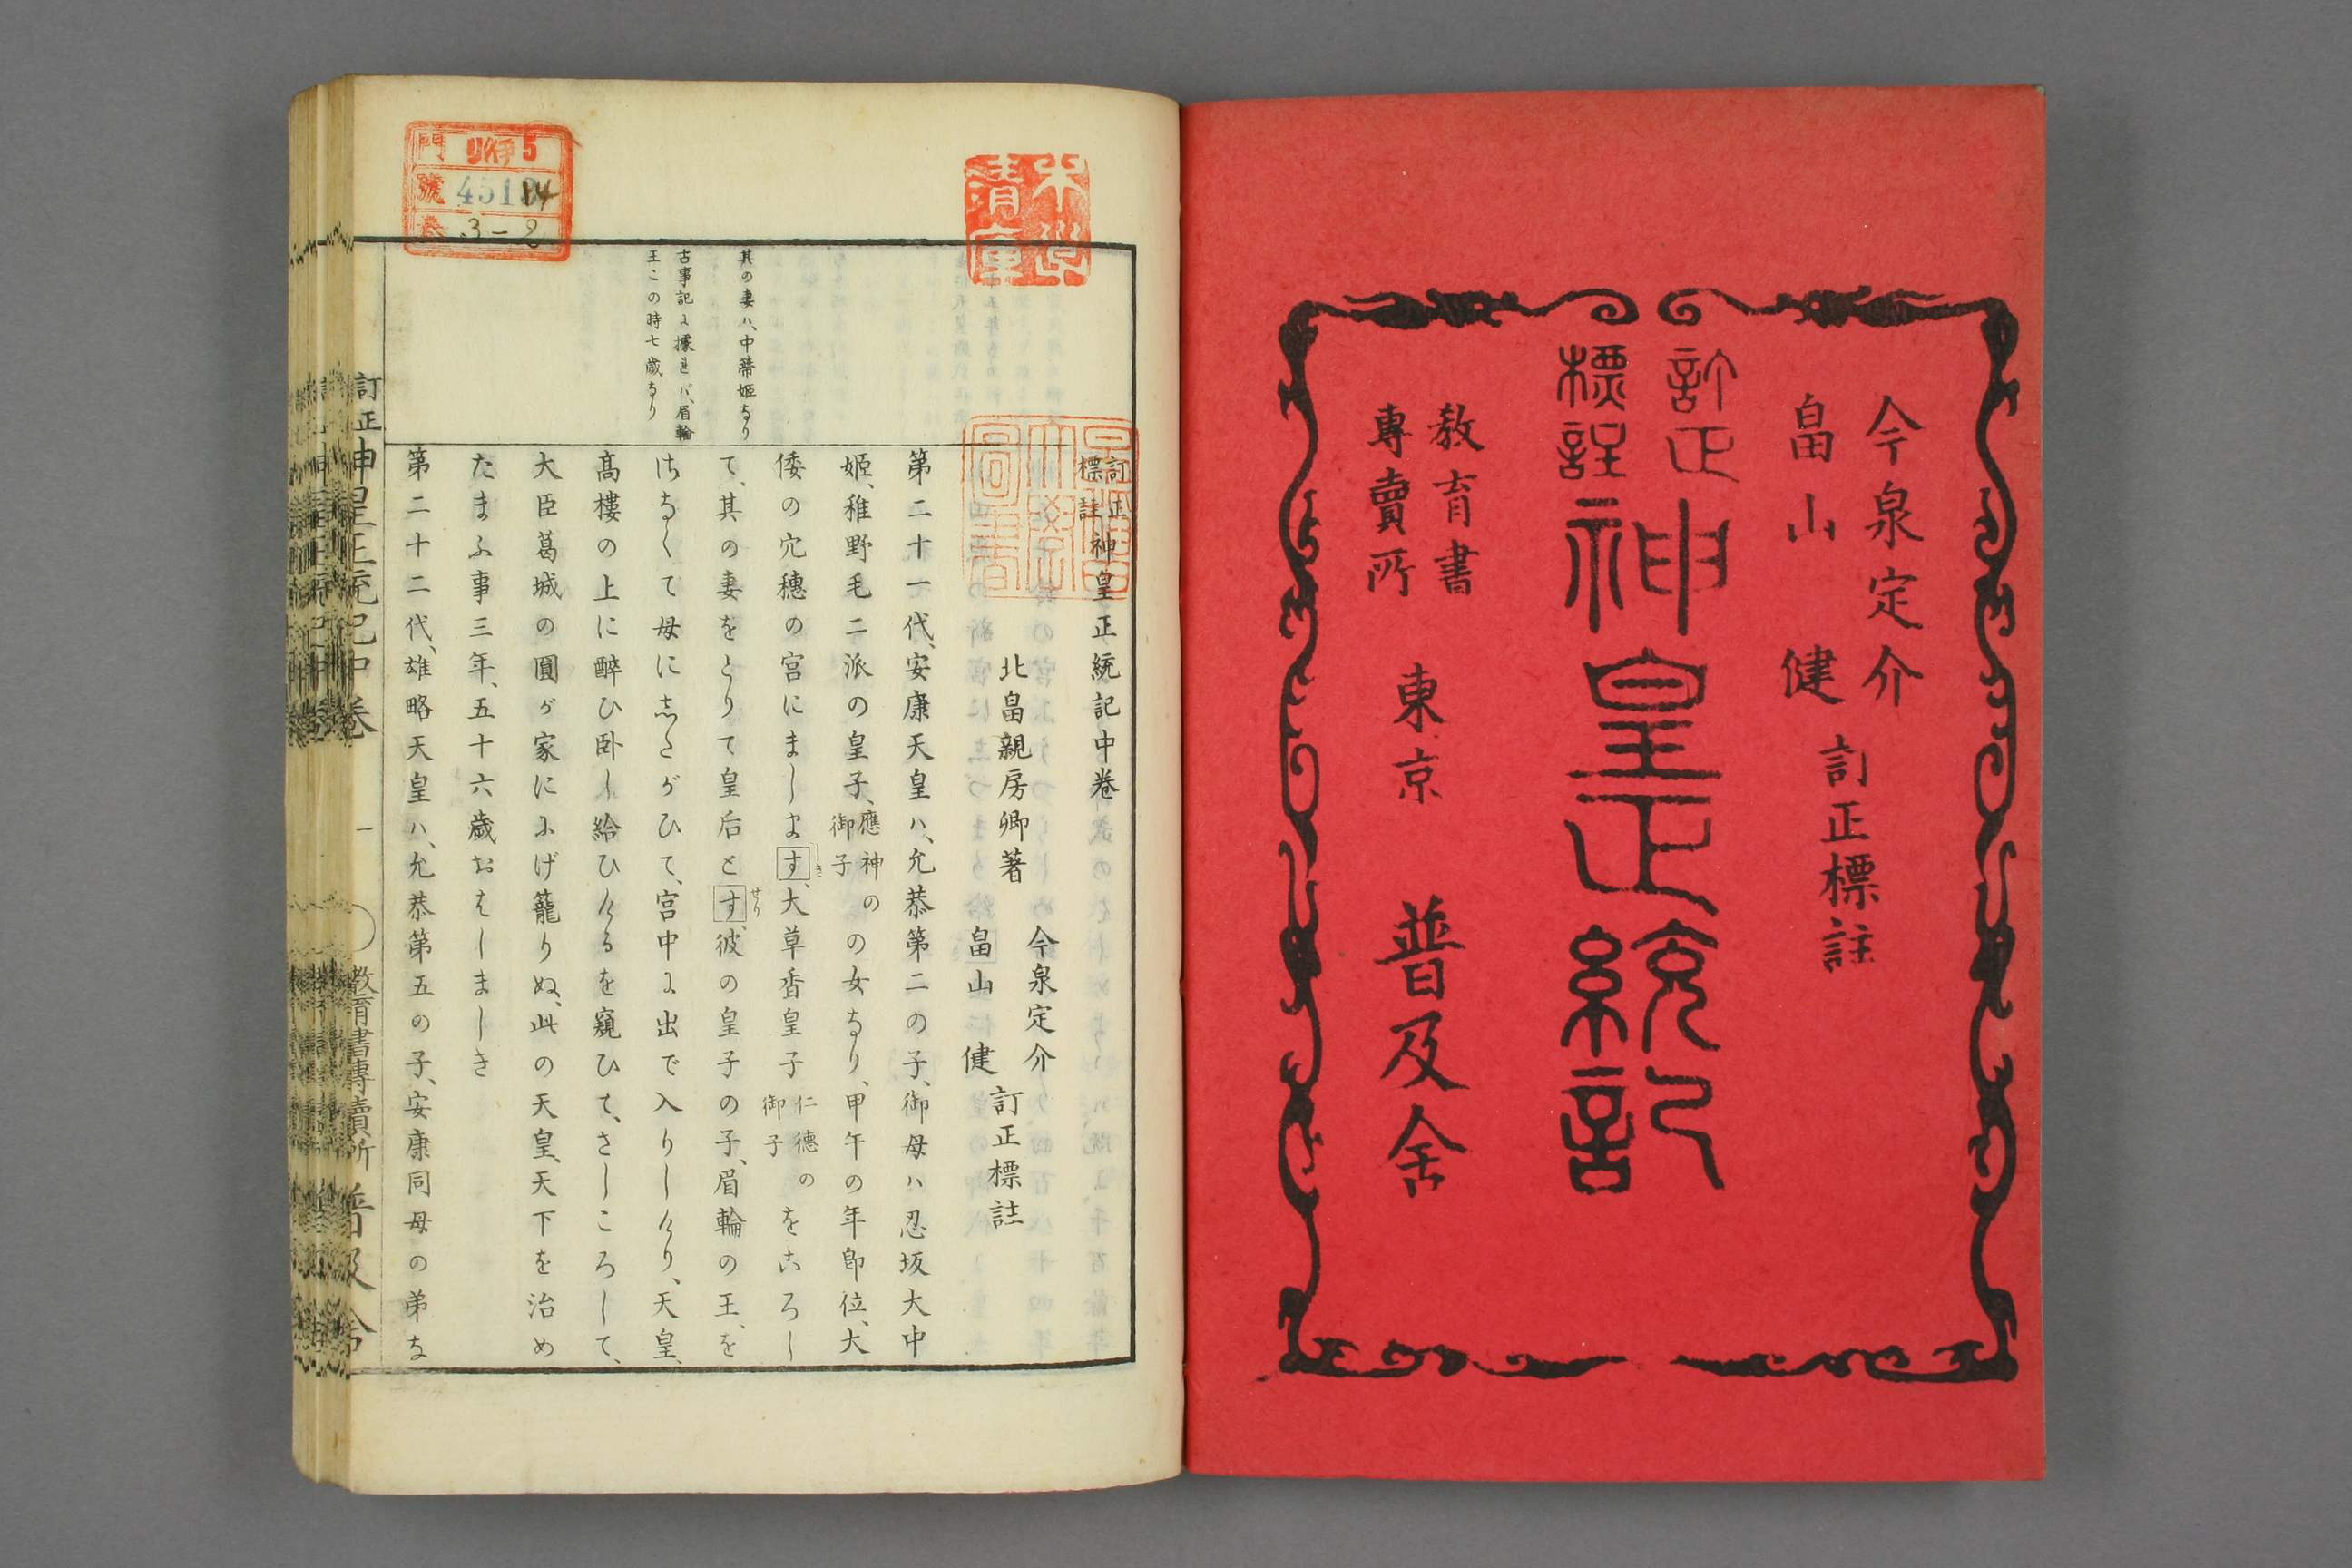 今泉定介
畠山健
訂正標註
訂正
標註
神皇正統記
教育書
專賣所
東京
普及舍
訂正
標註
神皇正統記中卷
北畠親房卿著
今泉定介
畠山健
訂正標註
第二十一代、安康天皇ハ、允恭第二の子、御母ハ忍坂大中
姬、稚野毛二派の皇子、應神の御子の女なり、甲午の年卽位、大
倭の穴穗の宮にまします、大草香皇子仁德の御子をころし
て、其の妻をとりて皇后とす、せり彼の皇子の子、眉輪の王、を
さなくて母にしたがひて、宮中に出で入りしけり、天皇、
髙樓の上に醉ひ臥し給ひけるを窺ひて、さしころして、
大臣葛城の圓が家ににげ籠りぬ、此の天皇、天下を治め
たまふ事三年、五十六歲おはしましき
第二十二代、雄略天皇ハ、允恭第五の子、安康同母の弟な
其の妻ハ、中蒂姬なり
古事記に據れバ、眉輪
王この時七歲なり
訂正神皇正統記中卷
一
教育書專賣所 普及舍
門
號
卷
5
3-2